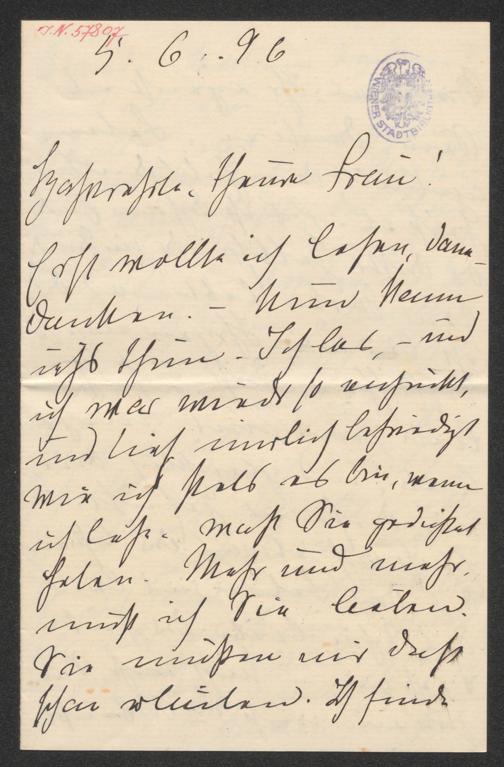 I.N. 57807
5. 6. 96
WIENER STADTBIBLIOTHEK
Hochverehrte, theure Frau!
Erst wollte ich lesen, dann
danken. – Nun kann
ichs thun. Ich las, – und
ich war wieder so entzückt,
und tief innerlich befriedigt
wie ich stets es bin, wenn
ich lese was Sie gedichtet
haben. Mehr und mehr,
muß ich Sie lieben.
Sie müssen mir das
schon erlauben. Ich finde